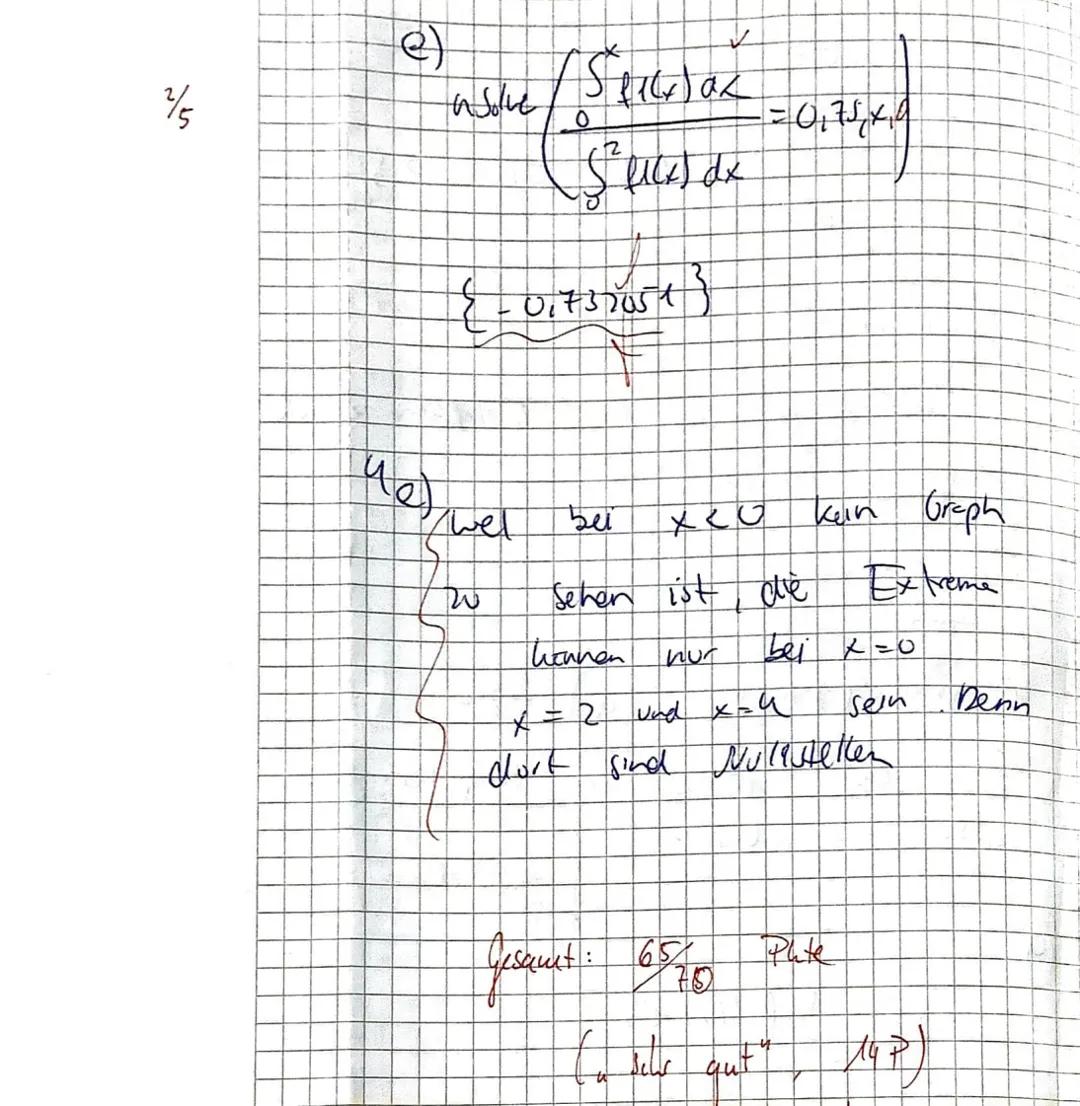 e)
2/5
nsolve(∫₀ˣ f1(x) dx / ∫₀² f1(x) dx = 0,75, x, 0) ✓
{ - 0,732051 }
4e) wel bei x < 0 kein Graph
zu sehen ist, die Extrema
können nur bei x=0
x = 2 und x=4 sein. Denn
dort sind Nullstellen
Gesamt: 65/75 Pkte
("sehr gut", 14 P)